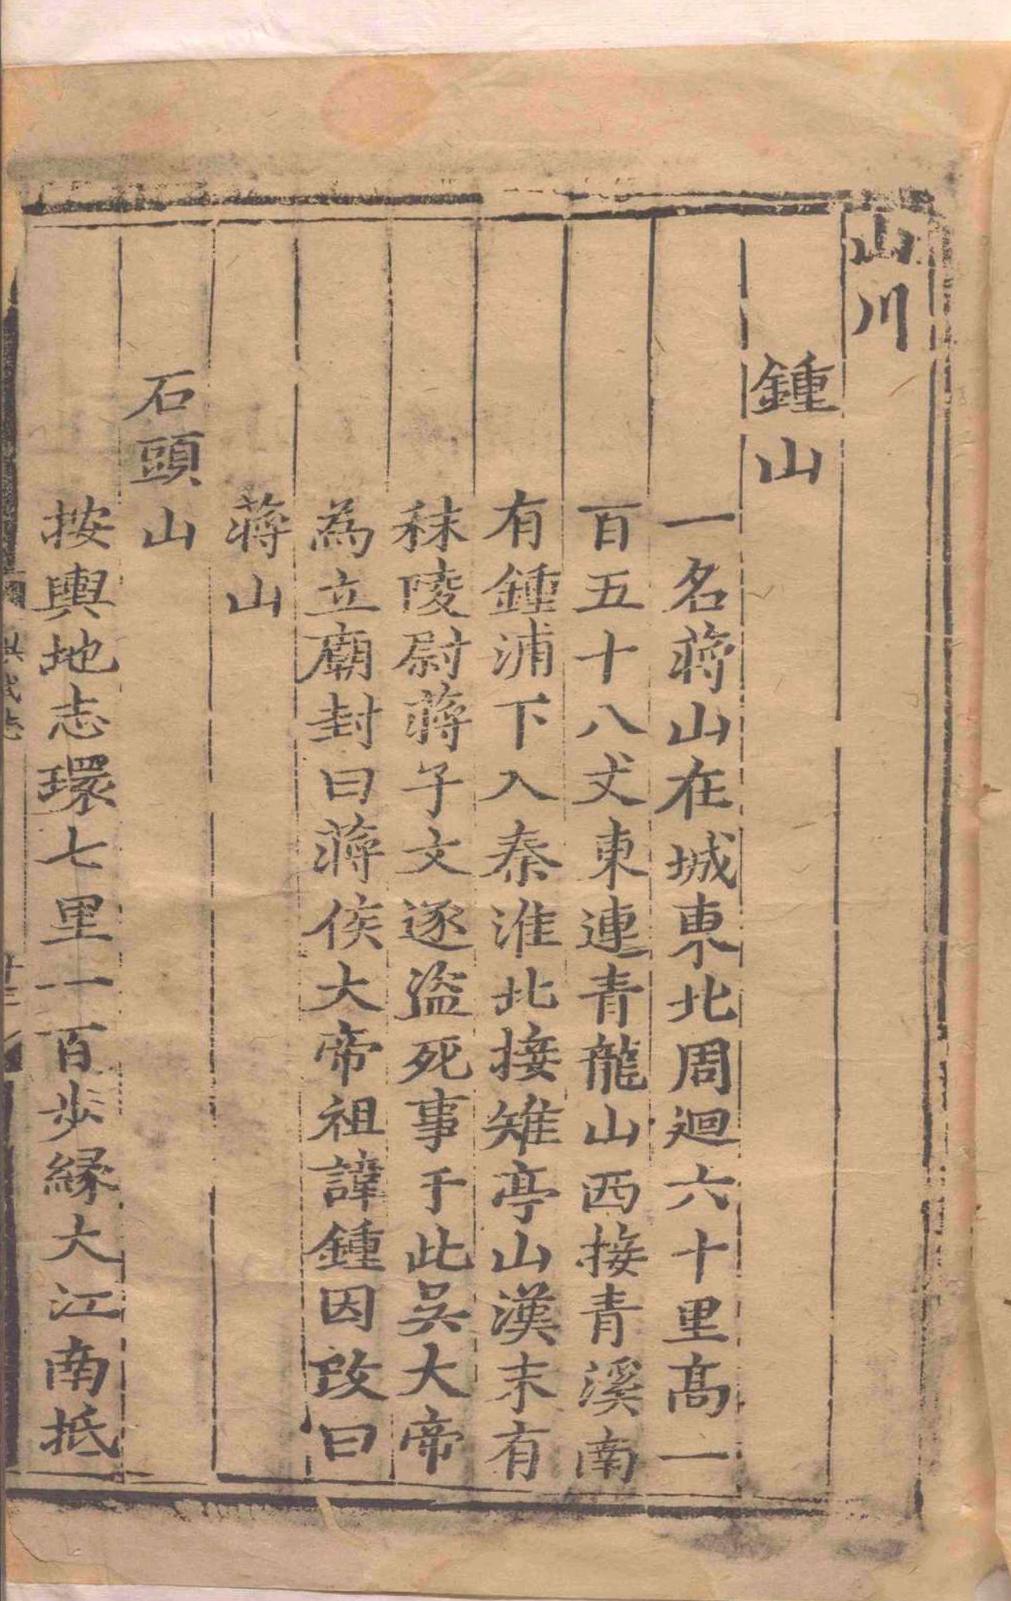 山川
鍾山
一名蔣山在城東北周迴六十里高一
百五十八丈東連青龍山西接青溪南
有鍾浦下入秦淮北接雉亭山漢末有
秣陵尉蔣子文逐盜死事于此吳大帝
為立廟封曰蔣侯大帝祖諱鍾因改曰
蔣山
石頭山
按輿地志環七里一百步緣大江南抵